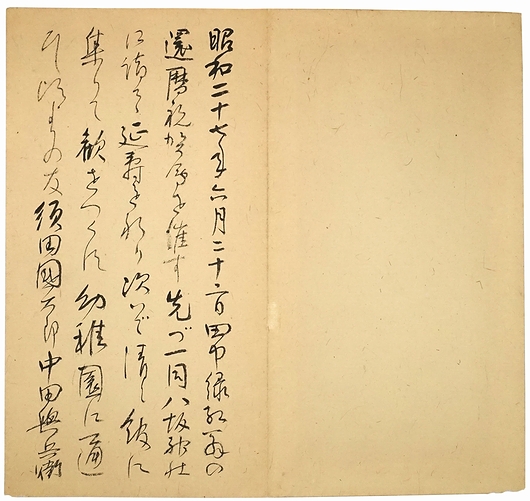 昭和二十七年六月二十二日田中緑紅翁の
還暦祝賀会を催す先づ一同八坂神社
に詣で延寿を祈り次いで清々館に
集りて歓をつくす幼稚園に通
ひし頃よりの友須田國太郎中田與兵衛